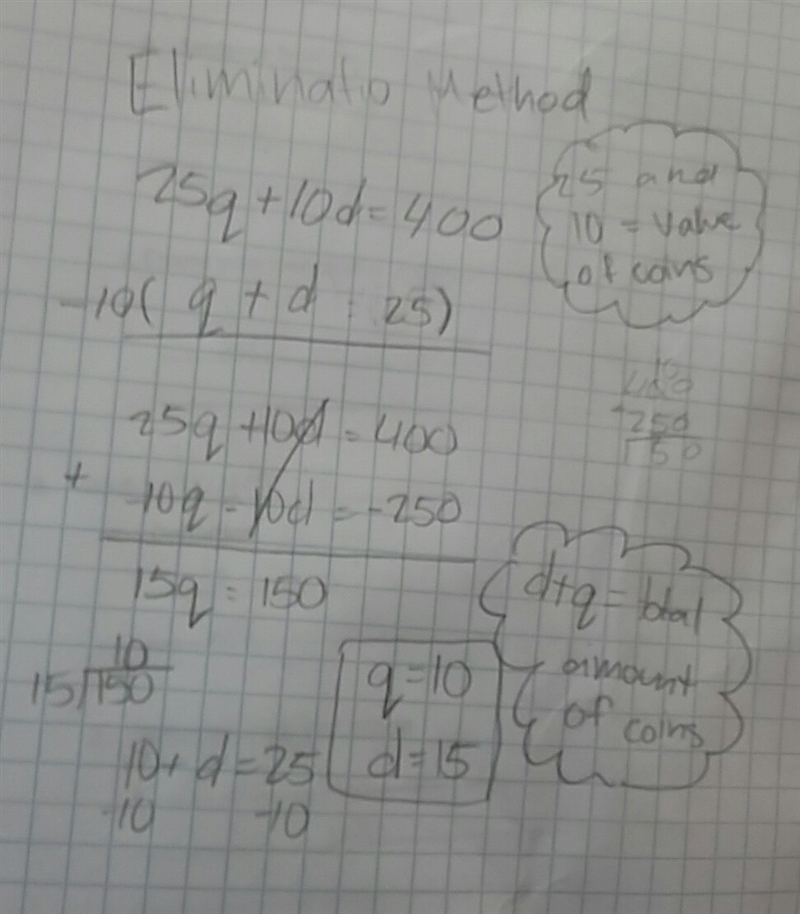 Eliminatio Method
25q + 10d = 400
-10( q + d = 25)
25 and
10 = value
of coins
25q + 10d = 400
+ -10q - 10d = -250
15q = 150
400
-250
150
d+q = total
amount
of coins
10
15√150
q = 10
d = 15
10 + d = 25
-10 -10